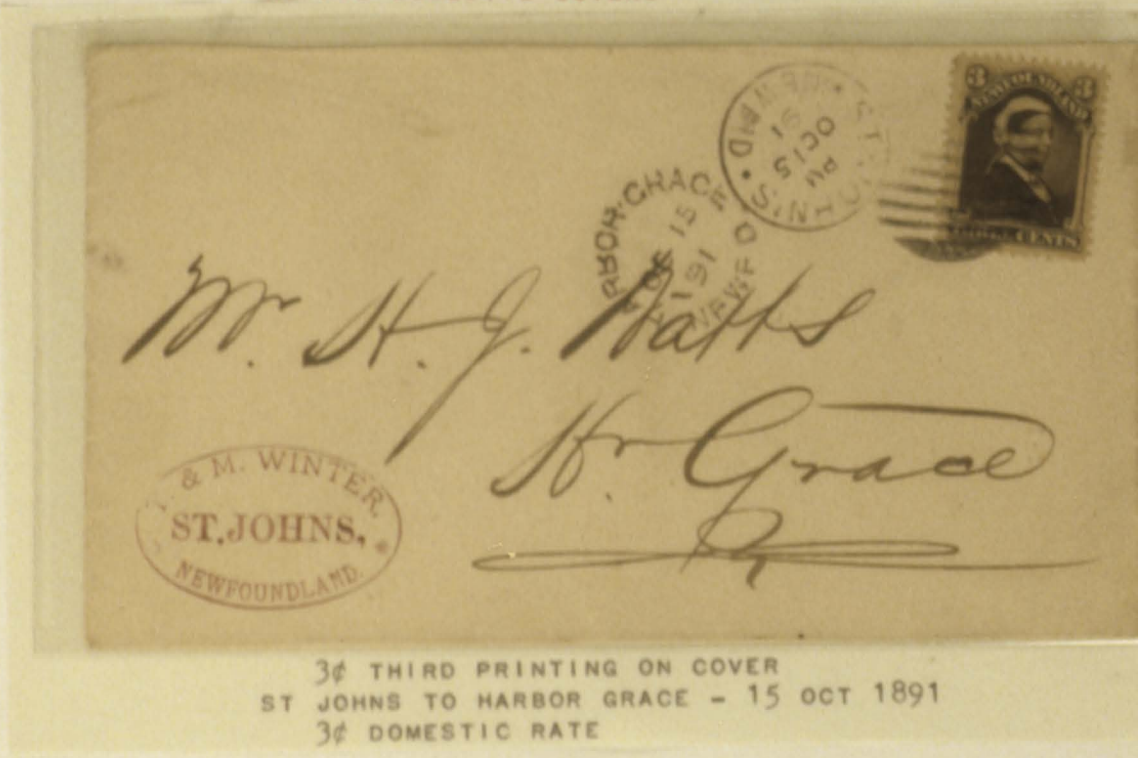 3 3
NEWFOUNDLAND
CENTS
ST JOHN'S
PM
OC 15
91
15
91
Mr. H. J. Watts
Hr. Grace
& M. WINTER,
ST. JOHNS,
NEWFOUNDLAND.
3¢ THIRD PRINTING ON COVER
ST JOHNS TO HARBOR GRACE – 15 OCT 1891
3¢ DOMESTIC RATE